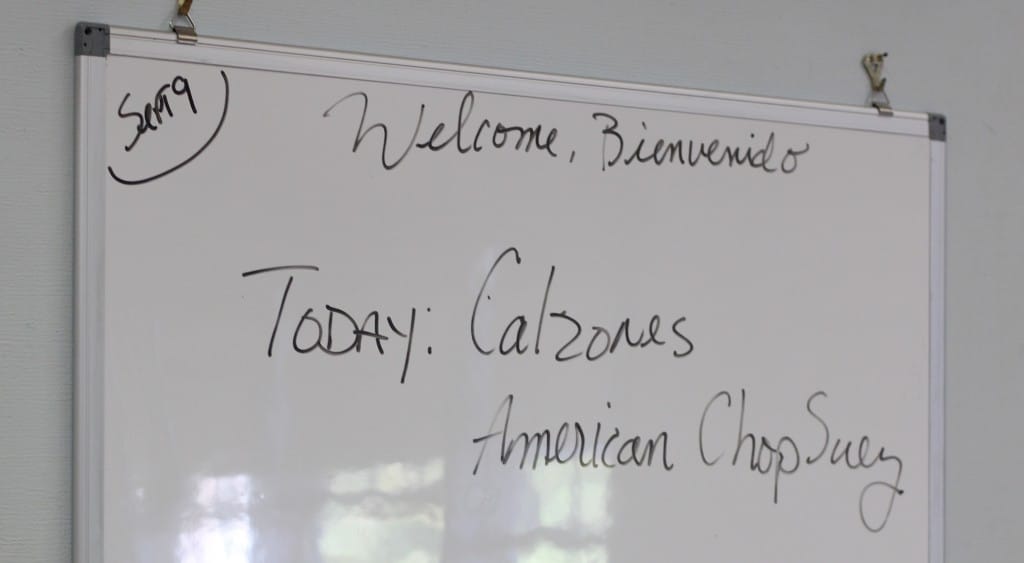 Sept 9
Welcome, Bienvenido
TODAY: Calzones
American Chop Suey